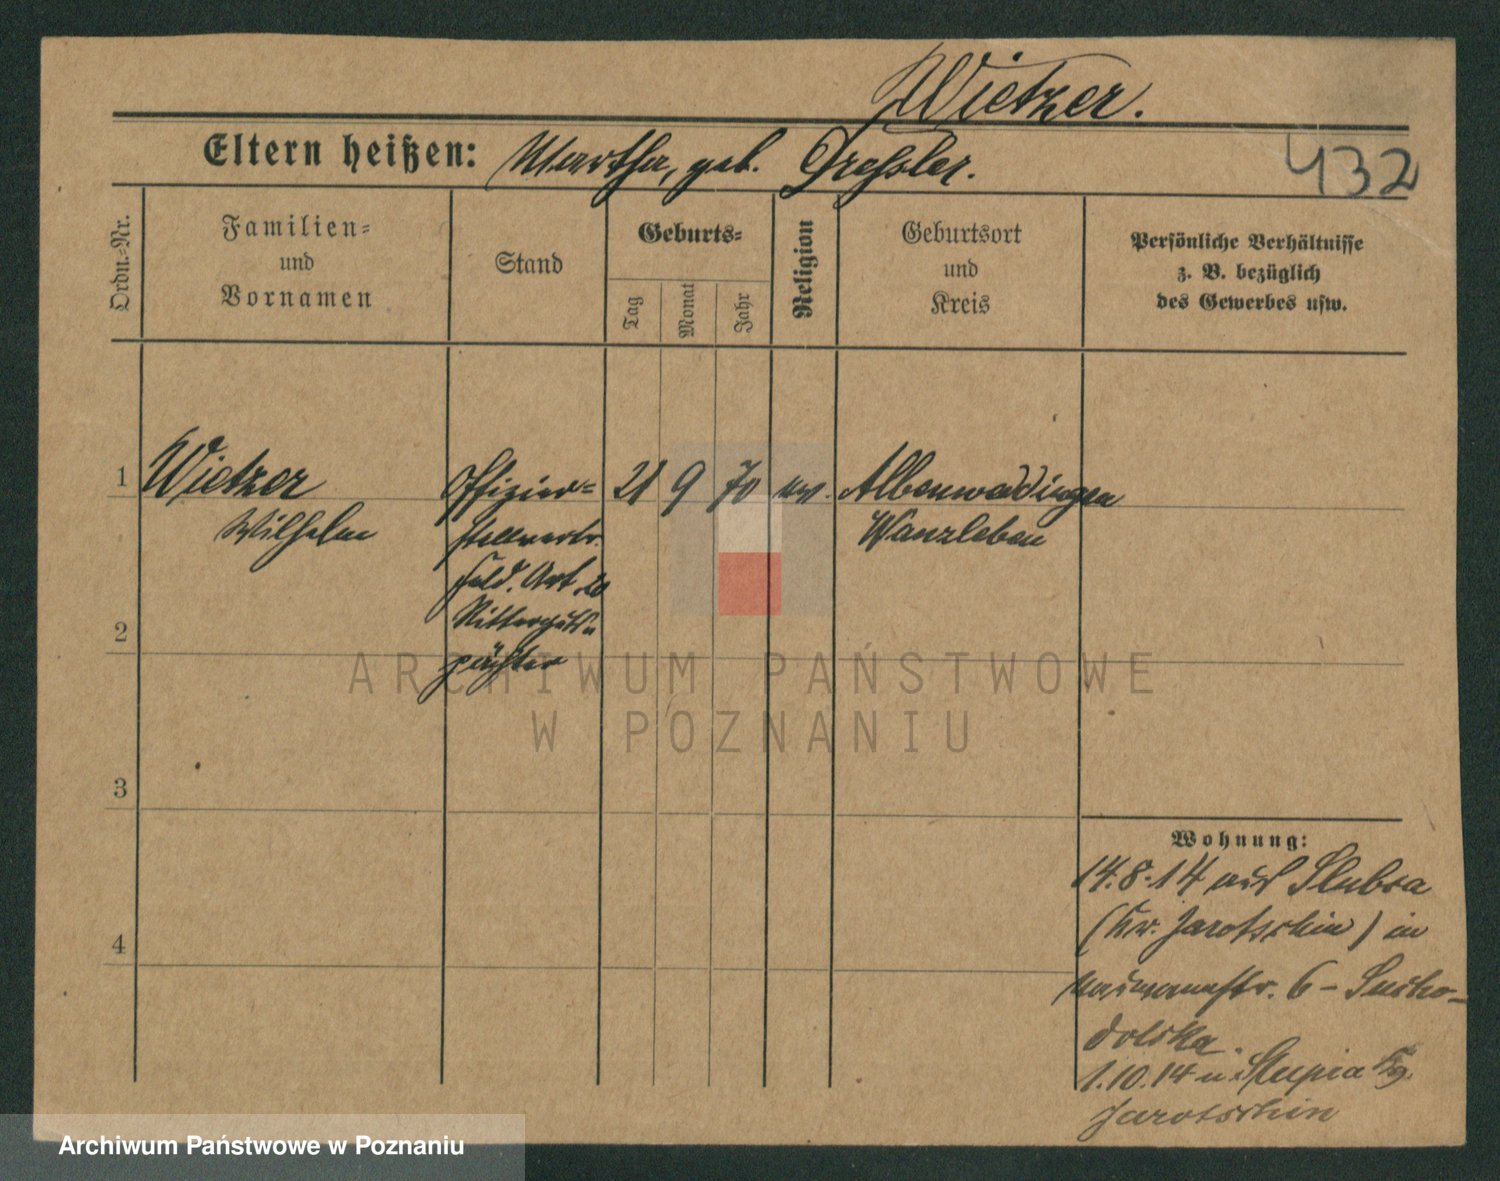 Wietzer.
Eltern heißen: Martha, geb. Dreßler.
432
Ordn.-Nr.
Familien-
und
Vornamen
Stand
Geburts-
Tag
Monat
Jahr
Religion
Geburtsort
und
Kreis
Persönliche Verhältnisse
z. B. bezüglich
des Gewerbes usw.
1 Wietzer Offizier- 21 9 70 ev. Altenweddingen
Wilhelm stellvertr. Wanzleben
Feld. Art. 20
Ritterguts-
2
pächter
3
4
Wohnung:
14.8.14 aus Slubia
(Kr. Jarotschin) in
Naumannstr. 6 - Sucho-
dolska.
1.10.14 n. Slupia Kr.
Jarotschin
ARCHIWUM PAŃSTWOWE
W POZNANIU
Archiwum Państwowe w Poznaniu